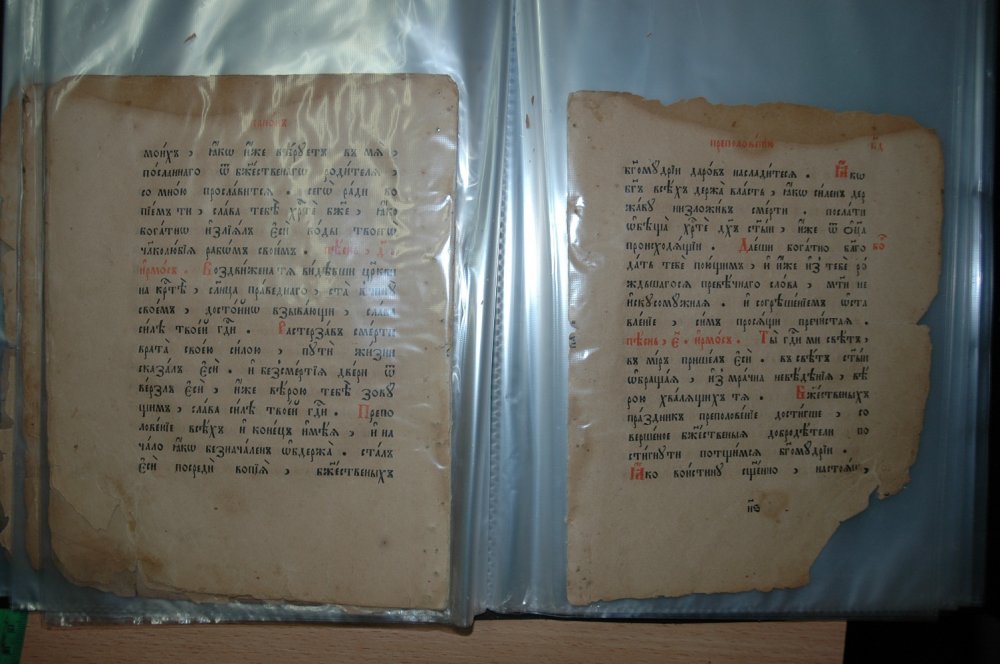 канонъ
мои́хъ , ꙗ҆́кѡ и҆́же вѣ́руетъ въ мѧ̀ ,
ѿ бж҃е́ственагѡ роди́телѧ ,
со мно́ю просла́витсѧ . сегѡ̀ ра́ди во
пїе́мъ ти , сла́ва тебѣ̀ хрⷭ҇тѐ бж҃е , ꙗ҆́кѡ
бога́тнѡ и҆злїѧ́лъ є҆сѝ во́ды твоегѡ̀
чл҃колю́бїѧ рабѡ́мъ свои́мъ . пѣ́снь , д҃ .
і҆рмо́съ . Воздви́жена тѧ ви́дѣвши цр҃кви
на крⷭ҇тѣ̀ , сл҃нца пра́веднаго , ста̀ в чи́нѣ
свое́мъ , досто́йнѡ взыва́ющи , сла́ва
си́лѣ твое́й гдⷭ҇и . Растерза́въ сме́рти
врата̀ свое́ю си́лою , пути̑ жи́зни
сказа́лъ є҆сѝ . и҆ безсме́ртїѧ две́ри ѿ
ве́рзлъ є҆сѝ , и҆̀же вѣ́рою тебѣ̀ зовꙋ́
щимъ , сла́ва си́лѣ твое́й гдⷭ҇и . Препо
лове́нїе всѣ́хъ и҆ коне́цъ и҆мѣ́ѧ , и҆ на
ча́ло ꙗ҆́кѡ безнача́ленъ ѡ҆бдержа̀ . ста́лъ
є҆сѝ посредѝ вопїѧ̀ , бж҃е́ственыхъ
преполове́нїю
бг҃ому́дрїи даро́въ наслади́тесѧ . Ꙗ҆́кѡ
бг҃ъ всѣ́хъ держа̀ вла́сть , ꙗ҆́кѡ си́ленъ дер
жа́ву низложи́въ сме́рти . посла́ти
ѡ҆бѣща̀ хрⷭ҇тѐ дх҃ъ ст҃ы́й , и҆́же ѿ ѻ҆ц҃а̀
происходѧ́щїи . Да́еши бога́тно бл҃го
да́ть тебѐ пою́щимъ , и҆ и҆́же и҆з̾ тебѐ ро́
ждьшагосѧ превѣ́чнаго сло́ва , мт҃и не
и҆скусому́жнаѧ . и҆ согрѣше́нїемъ ѡ҆ста
вле́нїе , си́мъ просѧ́щи пречи́стаѧ .
пѣ́снь , є҃ . і҆рмо́съ . Ты̀ гдⷭ҇и ми свѣ́тъ ,
въ мі́ръ прише́лъ є҆сѝ . въ свѣ́тъ ст҃ы́й
ѡ҆браща́ѧ , и҆з̾ мра́чна невѣ́дѣнїѧ , вѣ́
рою хвалѧ́щихъ тѧ . Бж҃е́ственыхъ
пра́здникъ преполове́нїе дости́гше , со
верше́ное бж҃е́ственыѧ добродѣ́тели по
сти́гнути потщи́мсѧ бг҃ому́дрїи .
Ꙗ҆́ко вои́стину сщ҃е́нно , настоѧ́й ,